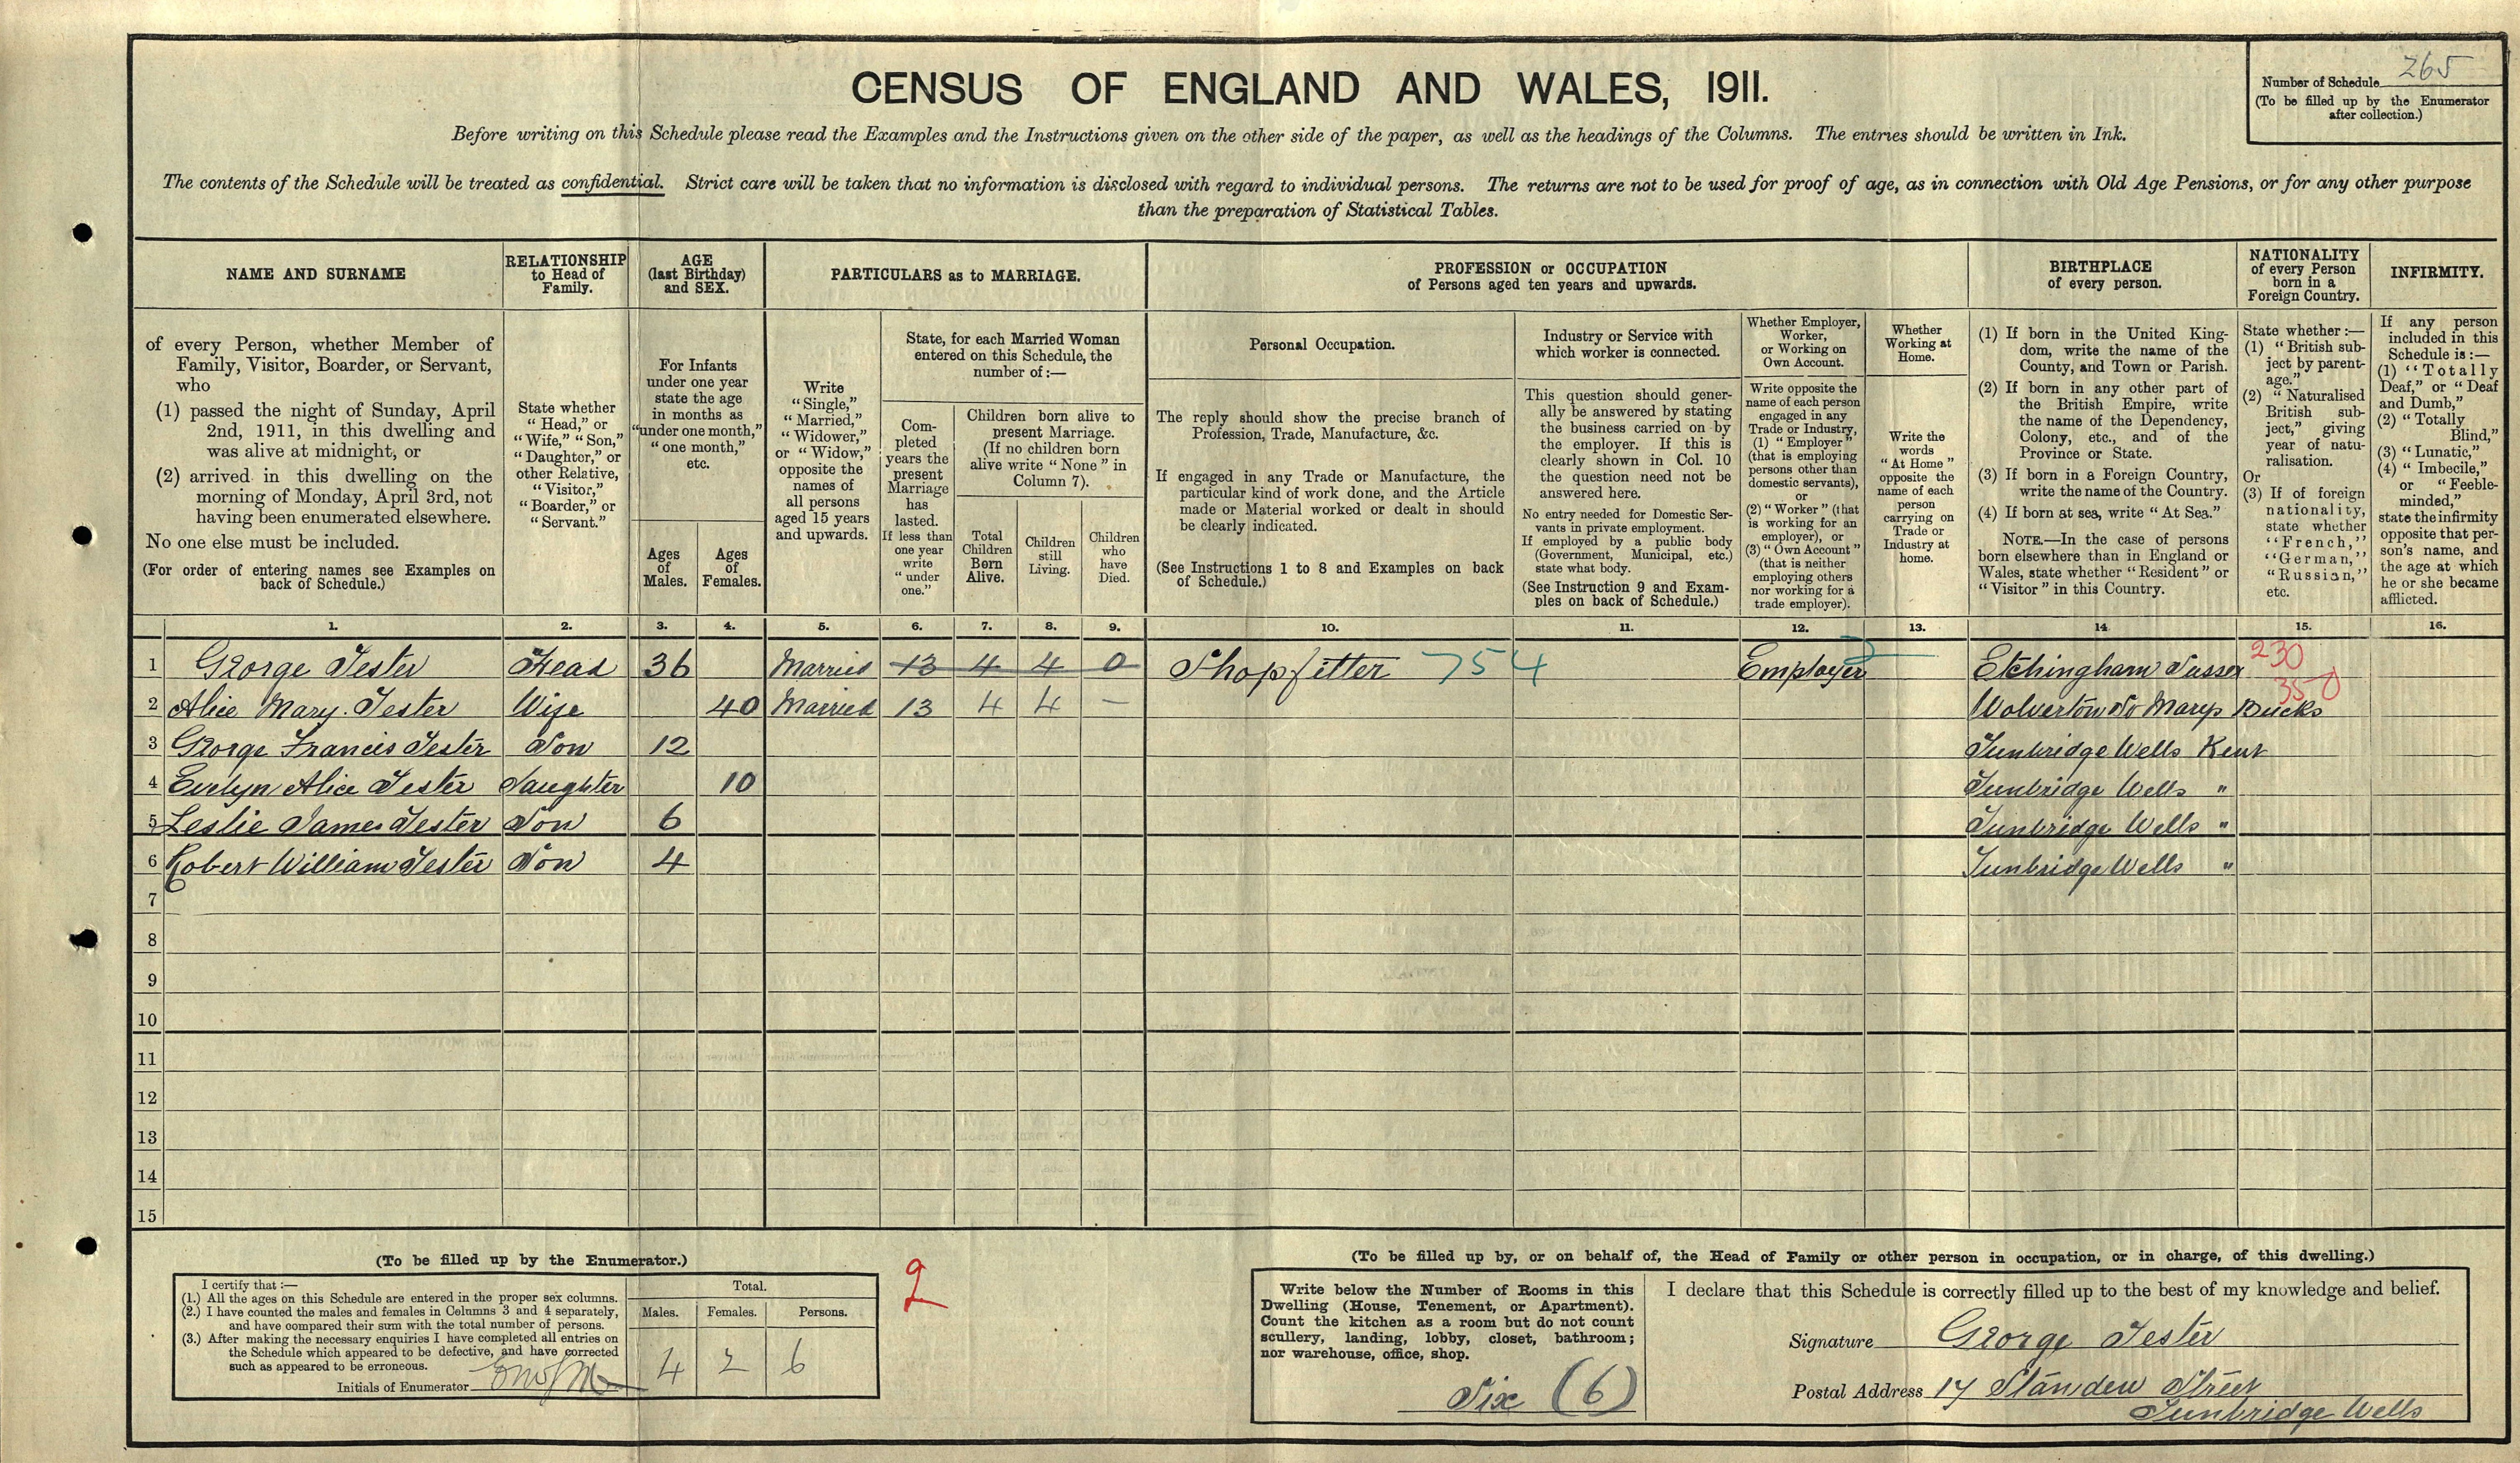 CENSUS OF ENGLAND AND WALES, 1911.
Number of Schedule 265
(To be filled up by the Enumerator
after collection.)
Before writing on this Schedule please read the Examples and the Instructions given on the other side of the paper, as well as the headings of the Columns. The entries should be written in Ink.
The contents of the Schedule will be treated as confidential. Strict care will be taken that no information is disclosed with regard to individual persons. The returns are not to be used for proof of age, as in connection with Old Age Pensions, or for any other purpose
than the preparation of Statistical Tables.
NAME AND SURNAME
of every Person, whether Member of
Family, Visitor, Boarder, or Servant,
who
(1) passed the night of Sunday, April
2nd, 1911, in this dwelling and
was alive at midnight, or
(2) arrived in this dwelling on the
morning of Monday, April 3rd, not
having been enumerated elsewhere.
No one else must be included.
(For order of entering names see Examples on
back of Schedule.)
RELATIONSHIP
to Head of
Family.
State whether
"Head," or
"Wife," "Son,"
"Daughter," or
other Relative,
"Visitor,"
"Boarder," or
"Servant."
AGE
(last Birthday)
and SEX.
For Infants
under one year
state the age
in months as
"under one month,"
"one month,"
etc.
Ages
of
Males.
Ages
of
Females.
PARTICULARS as to MARRIAGE.
Write
"Single,"
"Married,"
"Widower,"
or "Widow,"
opposite the
names of
all persons
aged 15 years
and upwards.
State, for each Married Woman
entered on this Schedule, the
number of:—
Com-
pleted
years the
present
Marriage
has
lasted.
If less than
one year
write
"under
one."
Children born alive to
present Marriage.
(If no children born
alive write "None" in
Column 7).
Total
Children
Born
Alive.
Children
still
Living.
Children
who
have
Died.
PROFESSION or OCCUPATION
of Persons aged ten years and upwards.
Personal Occupation.
The reply should show the precise branch of
Profession, Trade, Manufacture, &c.
If engaged in any Trade or Manufacture, the
particular kind of work done, and the Article
made or Material worked or dealt in should
be clearly indicated.
(See Instructions 1 to 8 and Examples on back
of Schedule.)
Industry or Service with
which worker is connected.
This question should gener-
ally be answered by stating
the business carried on by
the employer. If this is
clearly shown in Col. 10
the question need not be
answered here.
No entry needed for Domestic Ser-
vants in private employment.
If employed by a public body
(Government, Municipal, etc.)
state what body.
(See Instruction 9 and Exam-
ples on back of Schedule.)
Whether Employer,
Worker,
or Working on
Own Account.
Write opposite the
name of each person
engaged in any
Trade or Industry,
(1) "Employer"
(that is employing
persons other than
domestic servants),
or
(2) "Worker" (that
is working for an
employer), or
(3) "Own Account"
(that is neither
employing others
nor working for a
trade employer).
Whether
Working at
Home.
Write the
words
"At Home"
opposite the
name of each
person
carrying on
Trade or
Industry at
home.
BIRTHPLACE
of every person.
(1) If born in the United King-
dom, write the name of the
County, and Town or Parish.
(2) If born in any other part of
the British Empire, write
the name of the Dependency,
Colony, etc., and of the
Province or State.
(3) If born in a Foreign Country,
write the name of the Country.
(4) If born at sea, write "At Sea."
NOTE.—In the case of persons
born elsewhere than in England or
Wales, state whether "Resident" or
"Visitor" in this Country.
NATIONALITY
of every Person
born in a
Foreign Country.
State whether:—
(1) "British sub-
ject by parent-
age."
(2) "Naturalised
British sub-
ject," giving
year of natu-
ralisation.
Or
(3) If of foreign
nationality,
state whether
"French,"
"German,"
"Russian,"
etc.
INFIRMITY.
If any person
included in this
Schedule is:—
(1) "Totally
Deaf," or "Deaf
and Dumb,"
(2) "Totally
Blind,"
(3) "Lunatic,"
(4) "Imbecile,"
or "Feeble-
minded,"
state the infirmity
opposite that per-
son's name, and
the age at which
he or she became
afflicted.
1. 2. 3. 4. 5. 6. 7. 8. 9. 10. 11. 12. 13. 14 15. 16.
1 George Tester Head 36 Married 13 4 4 0 Shopfitter 754 Employer Etchingham Sussex 230
2 Alice Mary. Tester Wife 40 Married 13 4 4 — Wolverton St Marys Bucks 350
3 George Francis Tester Son 12 Tunbridge Wells Kent
4 Evelyn Alice Tester Daughter 10 Tunbridge Wells "
5 Leslie James Tester Son 6 Tunbridge Wells "
6 Robert William Tester Son 4 Tunbridge Wells "
7
8
9
10
11
12
13
14
15
(To be filled up by the Enumerator.)
I certify that:—
(1.) All the ages on this Schedule are entered in the proper sex columns.
(2.) I have counted the males and females in Columns 3 and 4 separately,
and have compared their sum with the total number of persons.
(3.) After making the necessary enquiries I have completed all entries on
the Schedule which appeared to be defective, and have corrected
such as appeared to be erroneous.
Initials of Enumerator
Total.
Males. Females. Persons.
4 2 6
2
(To be filled up by, or on behalf of, the Head of Family or other person in occupation, or in charge, of this dwelling.)
Write below the Number of Rooms in this
Dwelling (House, Tenement, or Apartment).
Count the kitchen as a room but do not count
scullery, landing, lobby, closet, bathroom;
nor warehouse, office, shop.
Six (6)
I declare that this Schedule is correctly filled up to the best of my knowledge and belief.
Signature George Tester
Postal Address 17 Standen Street
Tunbridge Wells